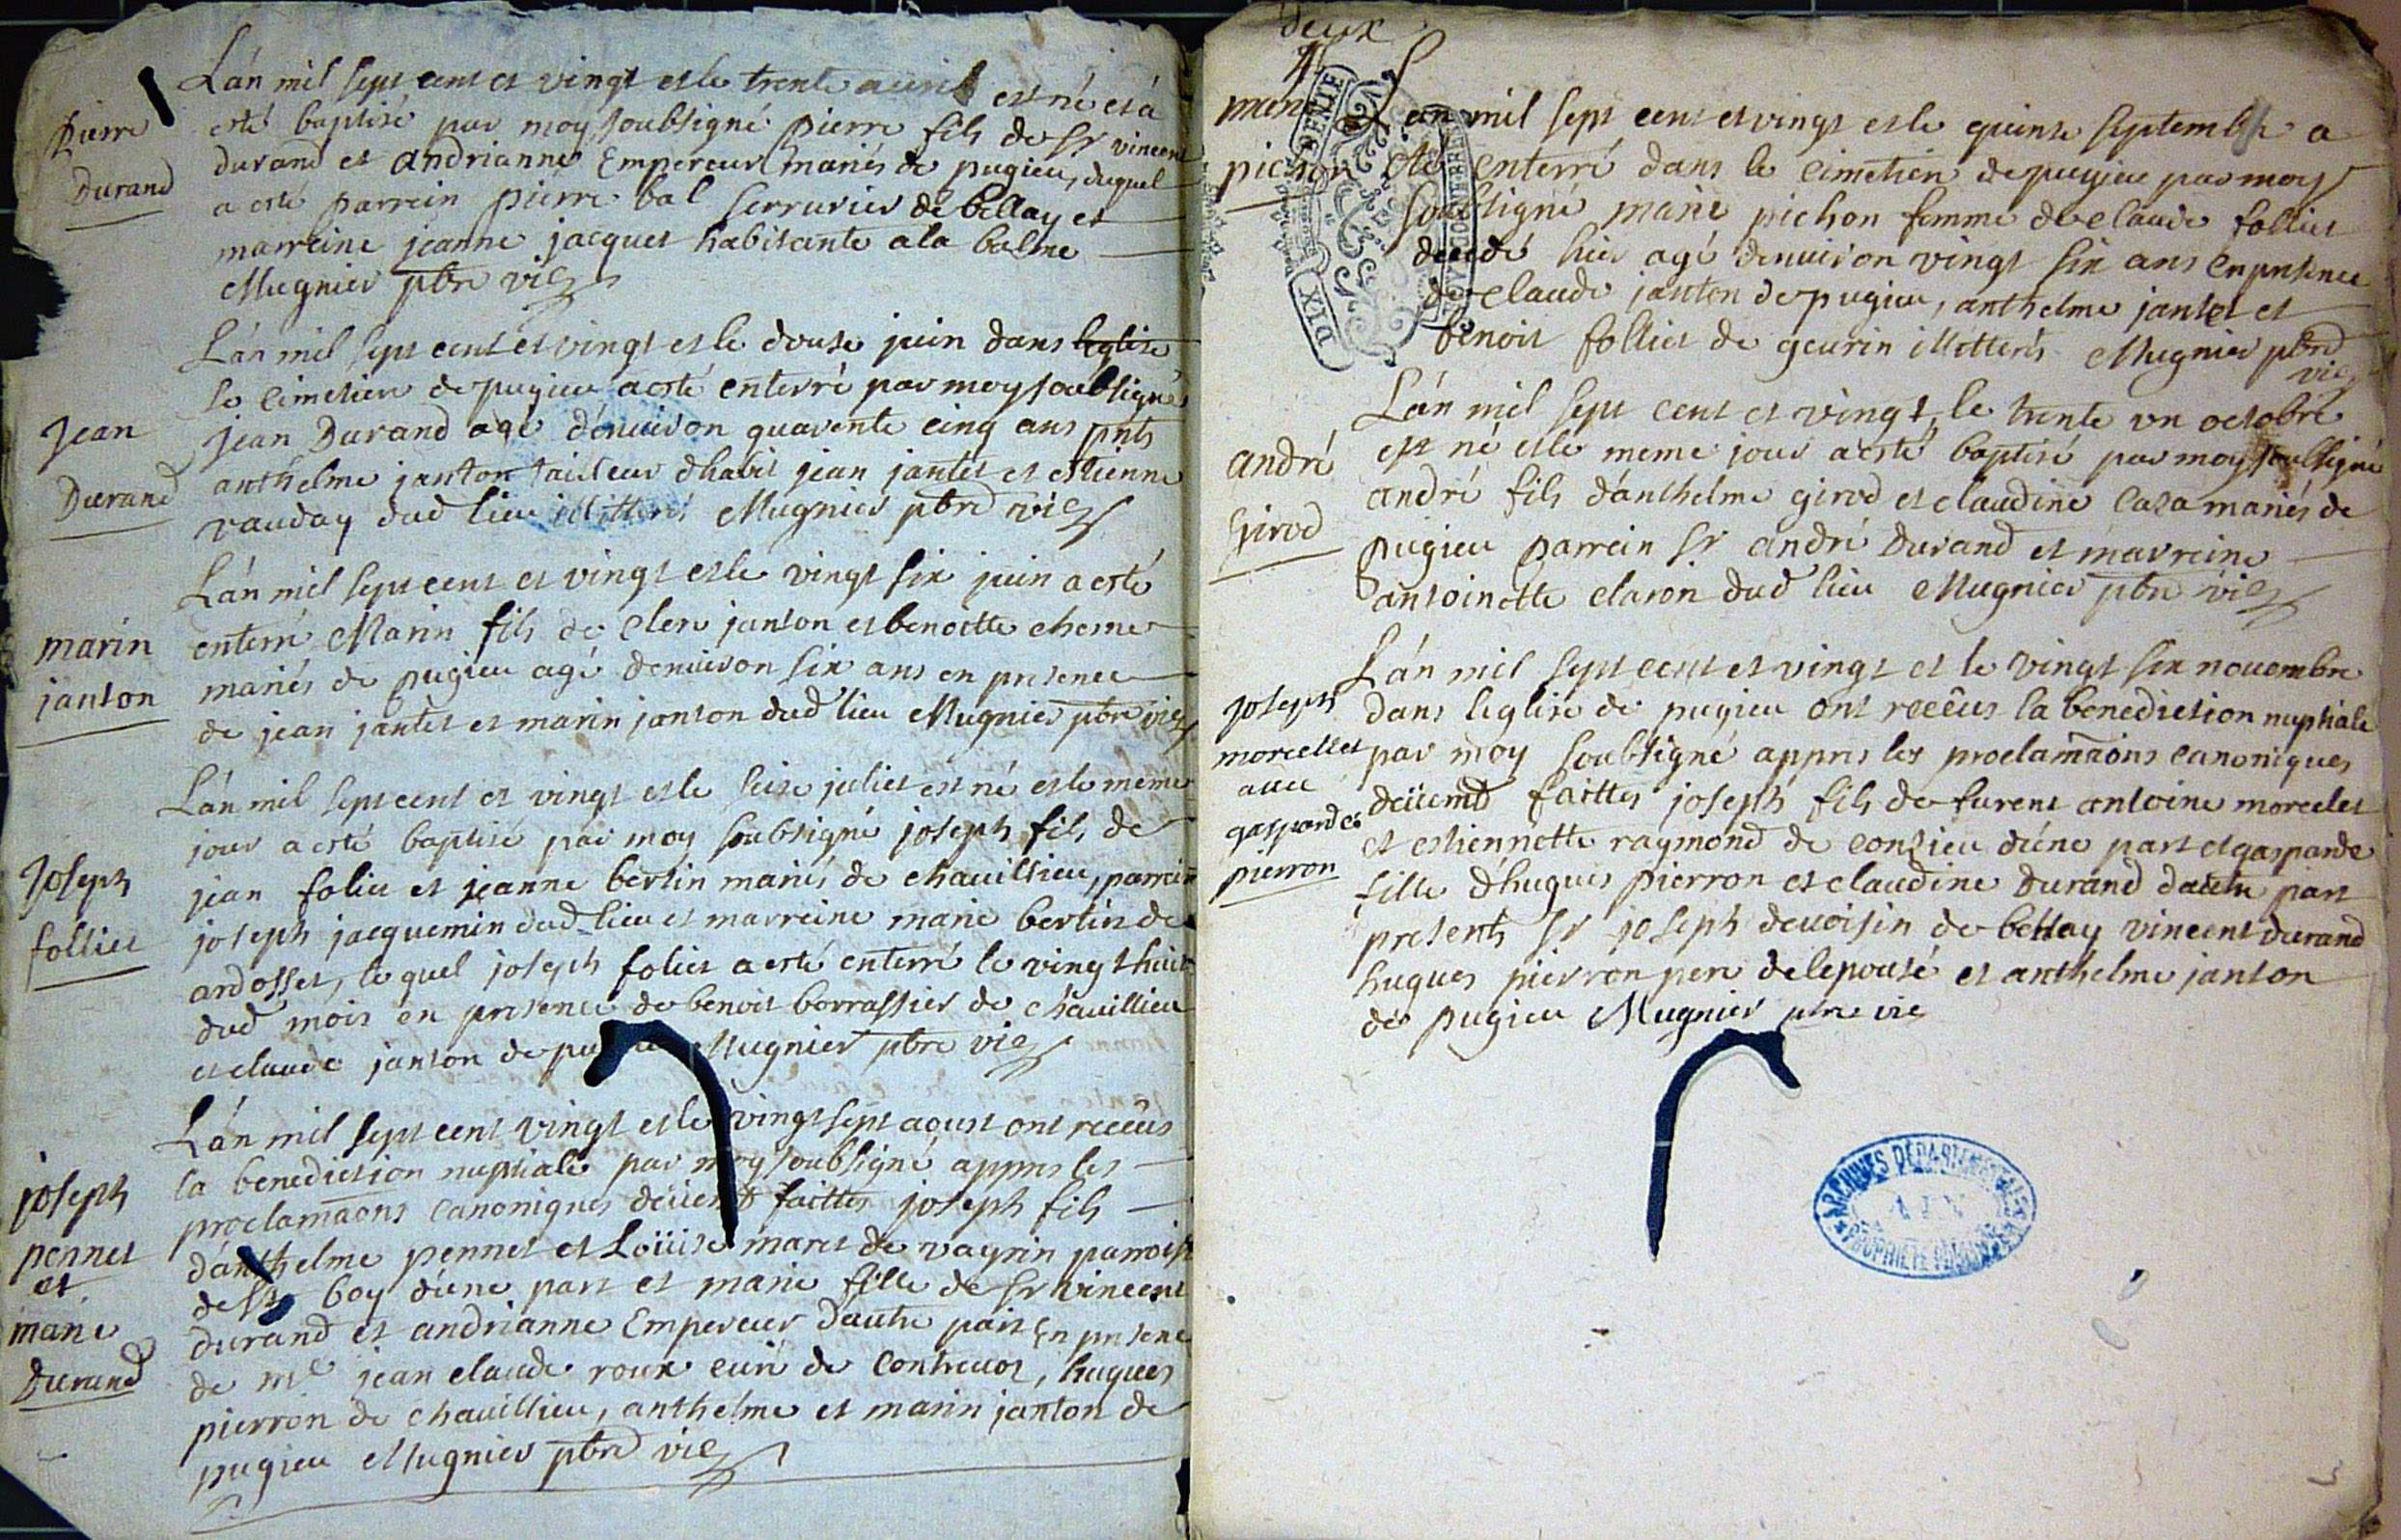 Pierre
Durand
Lán mil sept cent et vingt et le trente auril est né et à
esté baptisé par moy soubsigné pierre fils de sr vincent
durand et andrianne Empereur mariés de pugieu, duquel
a esté parrein pierre bal serrurier de bellay et
marreine jeanne jacquet habitante a la balme
Mugnier pbre vic
Jean
Durand
Lán mil sept cent et vingt et le douse juin dans leglise
le cimetiere de pugieu a esté enterré par moy soubsigné
jean Durand agé dénuiron quarente cinq ans pnts
anthelme janton tailleur dhabit jean jantet et estienne
vauday dud lieu illitterés Mugnier pbre vic
marin
janton
Lán mil sept cent et vingt et le vingt six juin a esté
enterré Marin fils de clere janton et benoitte cherne
mariés de pugieu agé denuiron six ans en presence
de jean jantet et marin janton dud lieu Mugnier pbre vic
Joseph
follier
Lán mil sept cent et vingt et le seise juliet est né et le meme
jour a esté baptisé par moy soubsigné joseph fils de
jean folier et jeanne bertin mariés de chauillieu, parrein
joseph jacquemin dud lieu et marreine marie bertin de
ardosset, le quel joseph folier a esté enterré le vingt huit
dud mois en presence de benoit borrassier de chauillieu
et claude janton de pu Mugnier pbre vic
joseph
pennet
et
marie
Durand
Lán mil sept cent vingt et le vingt sept aoust ont receus
la benediction nuptiale par moy soubsigné appres les
proclamãons canoniques deüemt faittes joseph fils
dánthelme pennet et Loüise maret de vayrin parroisse
de st boy dúne part et marie fille de sr vincent
durand et andrianne Empereur dautre part En presence
de me jean claude roux curé de contreuoz, hugues
pierron de chauillieu, anthelme et marin janton de
pugieu Mugnier pbre vic
deux
DIX
DENIE
marie
pichon
Lan mil sept cent et vingt et le quinse septembre a
été enterré dans le cimetiere de pugieu par moy
soubsigné marie pichon femme de claude follier
decedé hier agé denuiron vingt six ans En presence
de claude janton de pugieu, anthelme jantet et
benoit follier de geurin illitterés Mugnier pbre
vic
andré
Girod
Lán mil sept cent et vingt, le trente un octobre
est né et le meme jour a esté baptisé par moy soubsigné
andré fils dánthelme girod et claudine caza mariés de
pugieu parrein sr andré Durand et marreine
antoinette claron dud lieu Mugnier pbre vic
Joseph
morcellet
auec
gasparde
pierron
Lán mil sept cent et vingt et le vingt six nouembre
dans leglise de pugieu ont receüs la benediction nuptiale
par moy soubsigné appres les proclamãons canoniques
deüemt faittes joseph fils de furent antoine morcelet
et estiennette raymond de conzieu dúne part et gasparde
fille dhugues pierron et claudine Durand dautre part
presents sr joseph deuoisin de bellay vincent durand
hugues pierron pere de lepousé et anthelme janton
de pugieu Mugnier pbre vic
ARCHIVES DÉPARTEMENTALES
AIN
PROPRIÉTÉ PUBLIQUE